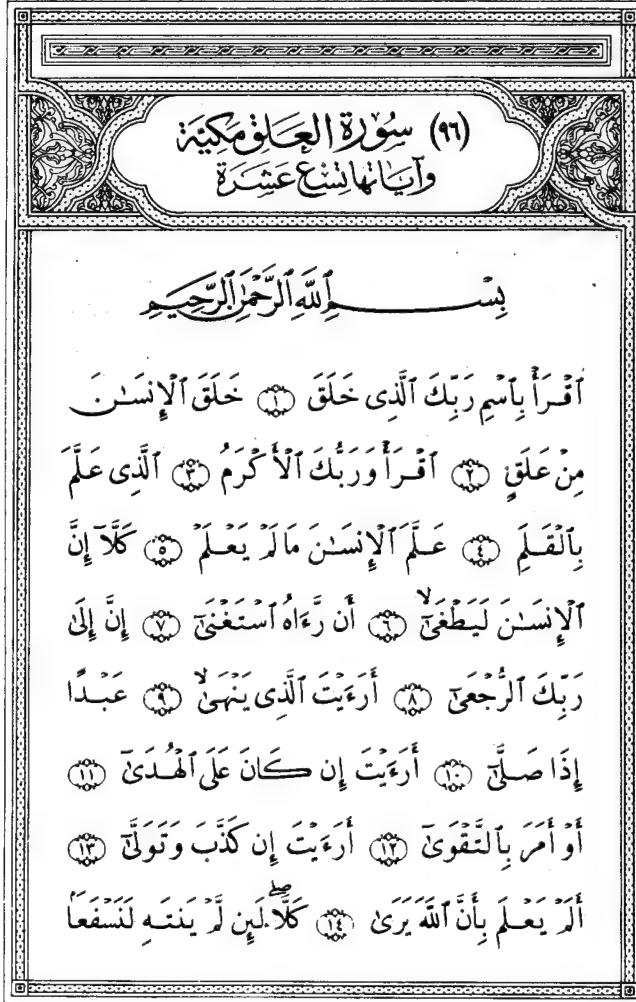 (٩٦) سُورَة العَلق مَكيَّة
وَآيَاتها تِسْع عَشرَة
بِسْمِ ٱللَّهِ ٱلرَّحْمَٰنِ ٱلرَّحِيمِ
ٱقْرَأْ بِٱسْمِ رَبِّكَ ٱلَّذِى خَلَقَ ١ خَلَقَ ٱلْإِنسَٰنَ
مِنْ عَلَقٍ ٢ ٱقْرَأْ وَرَبُّكَ ٱلْأَكْرَمُ ٣ ٱلَّذِى عَلَّمَ
بِٱلْقَلَمِ ٤ عَلَّمَ ٱلْإِنسَٰنَ مَا لَمْ يَعْلَمْ ٥ كَلَّآ إِنَّ
ٱلْإِنسَٰنَ لَيَطْغَىٰٓ ۙ ٦ أَن رَّءَاهُ ٱسْتَغْنَىٰٓ ٧ إِنَّ إِلَىٰ
رَبِّكَ ٱلرُّجْعَىٰٓ ٨ أَرَءَيْتَ ٱلَّذِى يَنْهَىٰ ۙ ٩ عَبْدًا
إِذَا صَلَّىٰٓ ١٠ أَرَءَيْتَ إِن كَانَ عَلَى ٱلْهُدَىٰٓ ١١
أَوْ أَمَرَ بِٱلتَّقْوَىٰٓ ١٢ أَرَءَيْتَ إِن كَذَّبَ وَتَوَلَّىٰٓ ١٣
أَلَمْ يَعْلَم بِأَنَّ ٱللَّهَ يَرَىٰ ١٤ كَلَّا ۖ لَئِن لَّمْ يَنتَهِ لَنَسْفَعًۢا